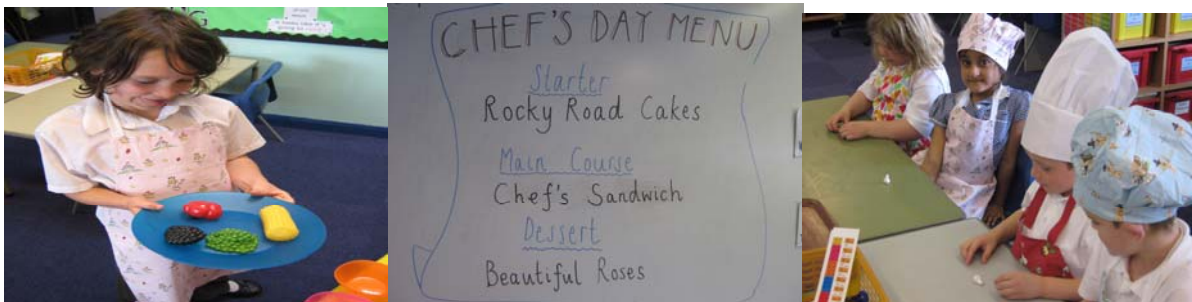 CHEF'S DAY MENU
Starter
Rocky Road Cakes
Main Course
Chef's Sandwich
Dessert
Beautiful Roses